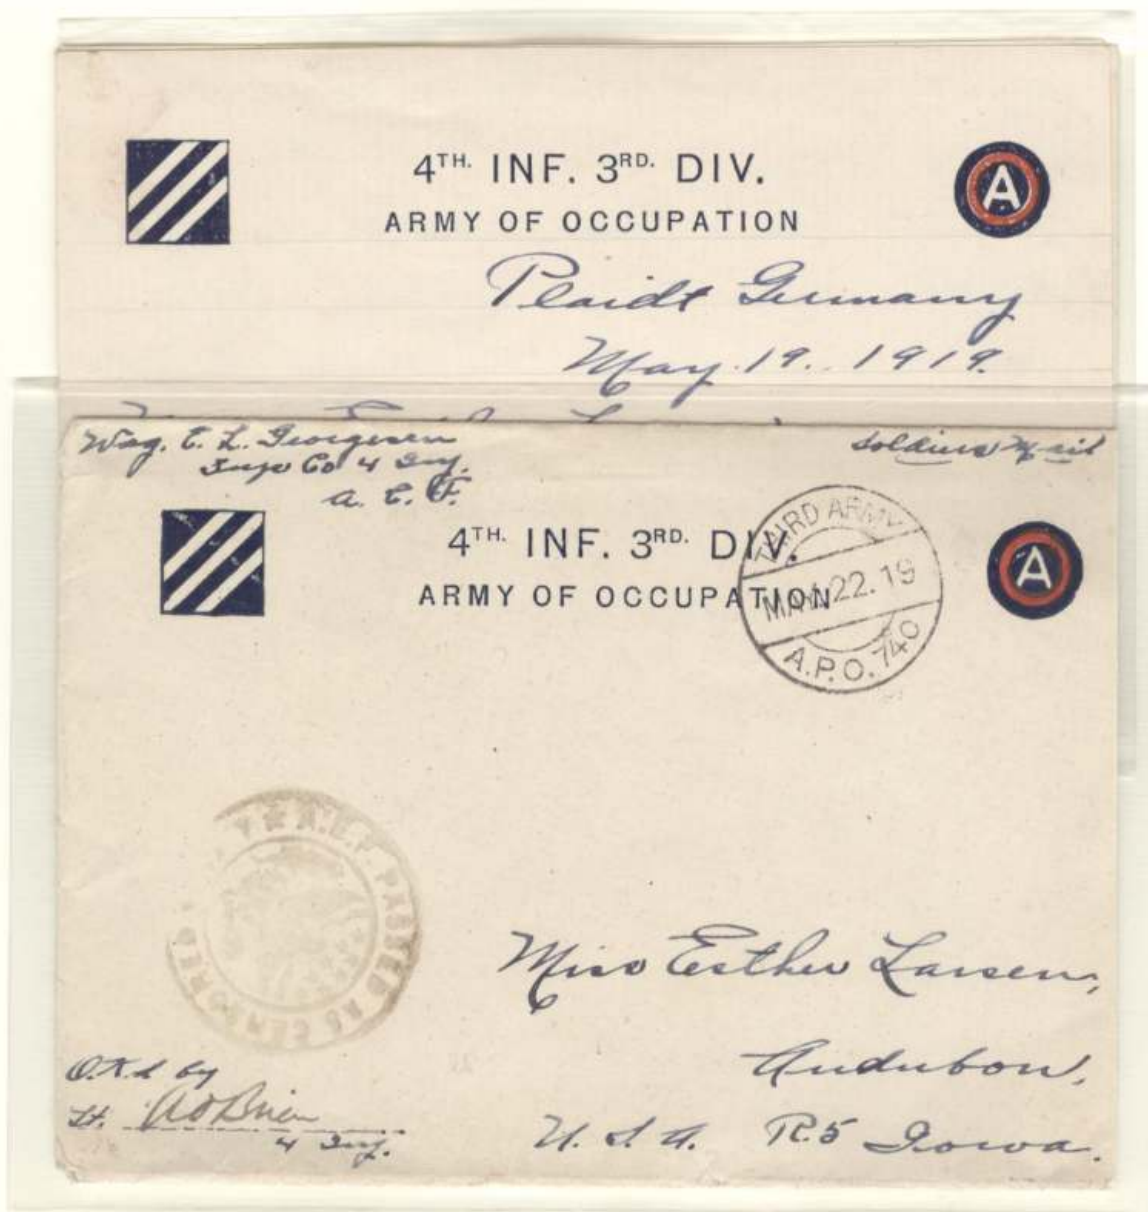 4TH. INF. 3RD. DIV.
ARMY OF OCCUPATION
A
Plaidt Germany
May. 19. 1919.
Wag. C. L. Georgesen
Sup Co 4 Inf.
A. E. F.
Soldiers Mail
4TH. INF. 3RD. DIV.
ARMY OF OCCUPATION
A
THIRD ARMY
MAY 22. 19
A.P.O. 740
A.E.F. PASSED AS CENSORED
Miss Esther Larsen,
Audubon,
U. S. A. R.5 Iowa.
O.K.d by
Lt. A O Brien
4 Inf.